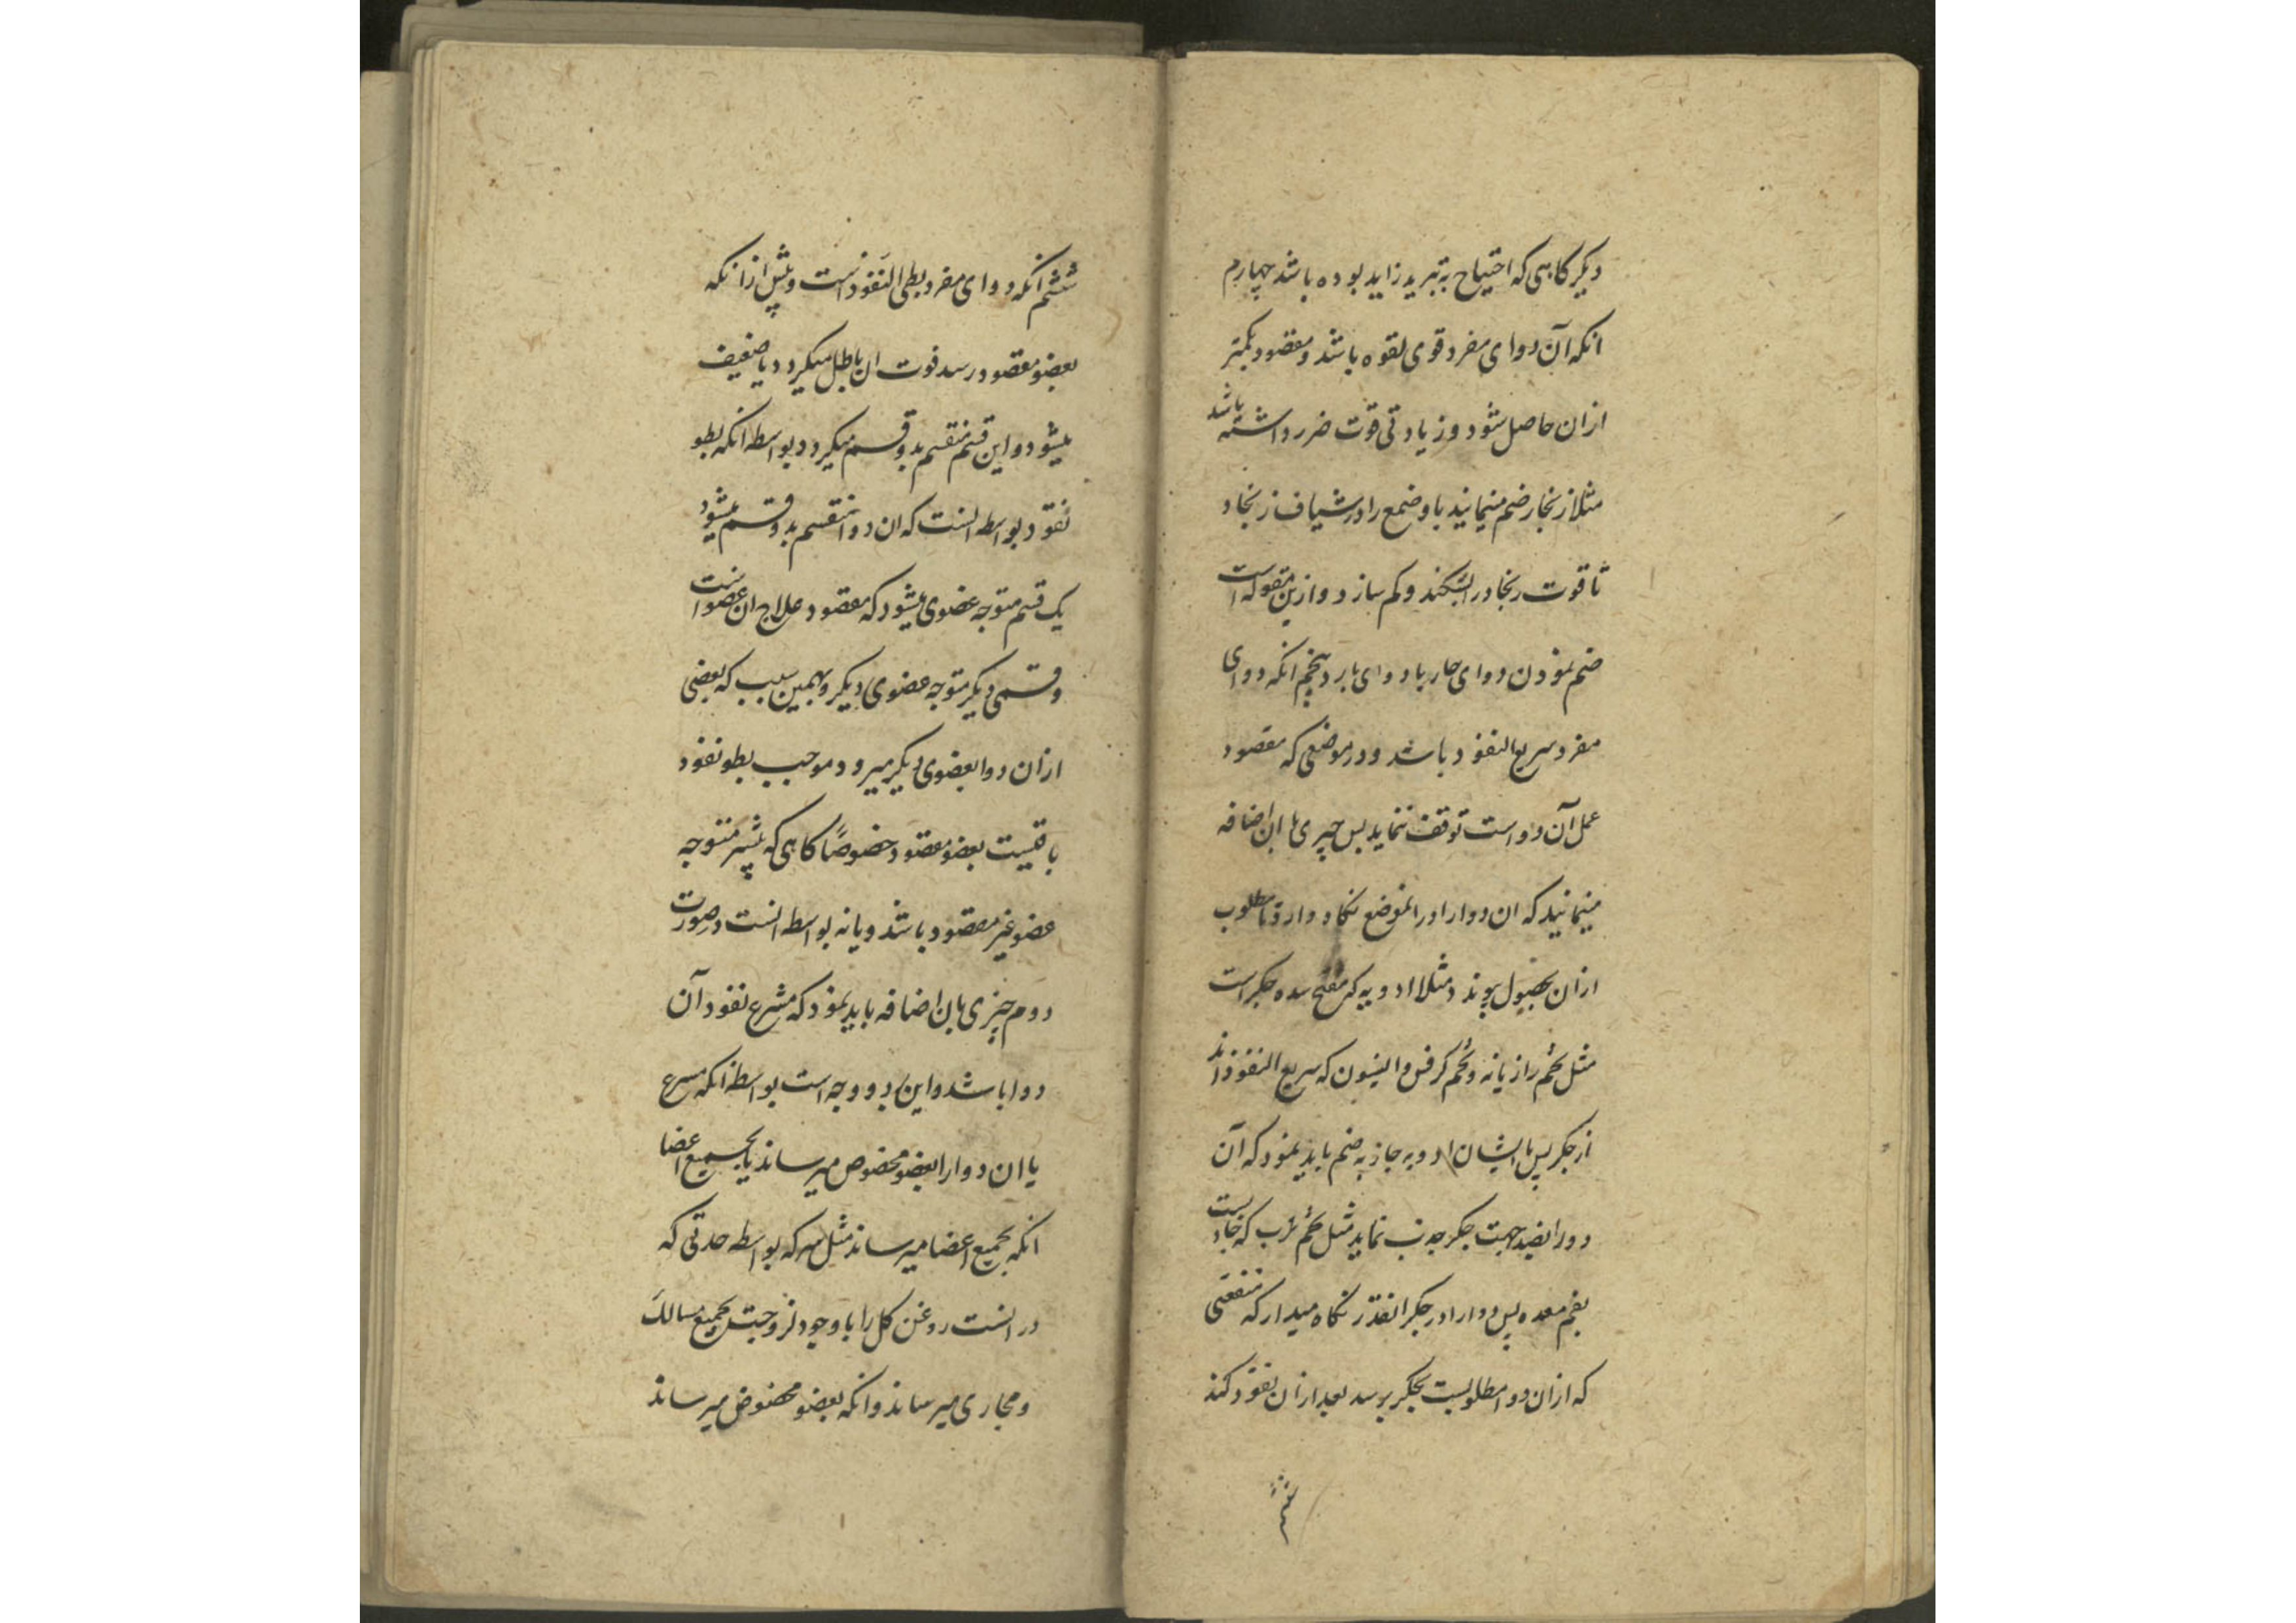 دیکر کاهی که احتیاج به تبرید زاید بوده باشد چهارم
انکه آن دوای مفرد قوی لقوه باشد و مقصود بکمتر
ازان حاصل شود و زیادتی قوت ضرر داشته باشد
مثلا زنجار ضم مینمایند با و ضمع را در شیاف زنجار
تا قوت زنجار را بشکند و کم سازد و ازین مقوله است
ضم نمودن دوای حار با دوای بارد پنجم انکه دوای
مفرد سریع النفوذ باشد و در موضعی که مقصود
عمل آن دواست توقف ننماید پس چیزی بان اضافه
مینمایند که ان دوا را در انموضع نکاه دارد تا مطلوب
ازان بحصول پیوندد مثلا ادویه که مفتح سده جکر است
مثل تخم رازیانه و تخم کرفس و انیسون که سریع النفوذ اند
از جکر پس با ایشان ادویه جاذبه ضم باید نمود که آن
دورا بضد جهت جکر جذب نماید مثل تخم ترب که جاذبست
بفم معده پس دوا را در جکر انقدر نکاه میدارد که منفعتی
که ازان دوا مطلوبست بجکر برسد بعد ازان نفوذ کند
ششم
ششم انکه دوای مفرد بطی النفوذ است و پیش از انکه
بعضو مقصود رسد قوت ان باطل میکردد یا ضعیف
میشود و این قسم منقسم بدو قسم میکردد بواسطه انکه بطو
نفوذ بواسطه انست که ان دوا منقسم بدو قسم میشود
یک قسم متوجه عضوی میشود که مقصود علاج ان عضو است
و قسمی دیکر متوجه عضوی دیکر و بهمین سبب که بعضی
ازان دوا بعضوی دیکر میرود موجب بطو نفوذ
باقیست بعضو مقصود خصوصاً کاهی که بیشتر متوجه
عضو غیر مقصود باشد و یا نه بواسطه انست در صورت
دوم چیزی بان اضافه باید نمود که مسرع نفوذ آن
دوا باشد و این بدو وجه است بواسطه انکه مسرع
یا ان دوا را بعضو مخصوص میرساند یا بجمیع اعضا
انکه بجمیع اعضا میرساند مثل سرکه بواسطه حدتی که
در انست روغن کل را با وجود لزوجتش بجمیع مسالک
و مجاری میرساند و انکه بعضو مخصوص میرساند